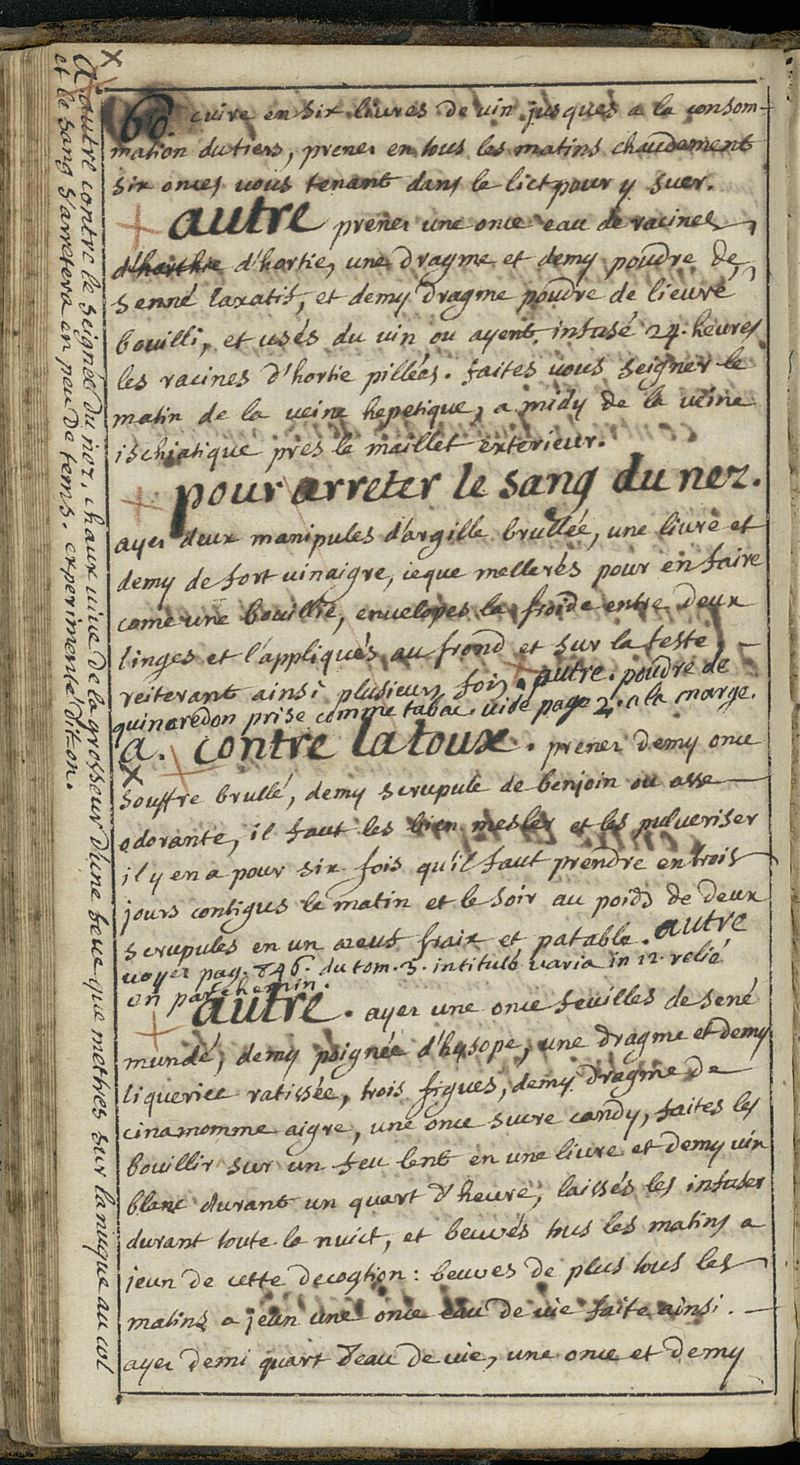 60. cuire en six livres de vin jusques a la consom-
mation du tiers, prener en tous les matins chaudement
six onces vous tenant dans le lict pour y suer.
+ autre prener une once eau de racines
d'hortie, une dragme et demy poudre de
senné laxatif, et demy dragme poudre de lieuvre
bouilli, et usés du vin ou ayent infusé 24. heures
les racines d'hortie pillées. faites vous seigner le
matin de la veine hepetique, a midy de la veine
ischiatique pres le maillet exterieur.
+ pour arreter le sang du nez.
ayer deux manipules d'argille brullée, une livre et
demy de fort vinaigre, ce que mellerés pour en faire
come une bouillie, envelopes la froide entre deux
linges et l'appliqués au frond et sur la teste,
reiterant ainsi plusieurs fois. + autre. poudre de
quinaredon prise comme tabac. vide page 2. a la marge.
a. + contre la toux. prener demy once
x
souffre brullé, demy scrupule de benjoin ou asse
odorante, il faut les bien mesler et les pulveriser
il y en a pour six fois qu'il faut prendre en trois
jours contigus le matin et le soir au poids de deux
scrupules en un oeuf fraix et patable. autre
voyer pag. 846. du tom. 3. intitulé varia in 12. relié
en parchemin.
+ autre. ayer une once feuilles de sené
mundé, demy poignée d'hysope, une dragme et demy
liquerice ratissée, trois figues, demy dragme de
cinamomme aigre, une once sucre candy, faites les
bouillir sur un feu lent en une livre et demy vin
blanc durant un quart d'heure, laissés les infuser
durant toute la nuict, et beuvés tous les matins a
jeun de cette decogtion: beuves de plus tous les
matins a jeun une once eau de vie faite ainsi.
ayer demi quart d'eau de vie, une once et demy
x
a autre contre le seignée du nez, chaux vive de la grosseur d'une feve que mettres sur la nuque au col
et le sang s'arretera en peu de tems. experimenté dit on.